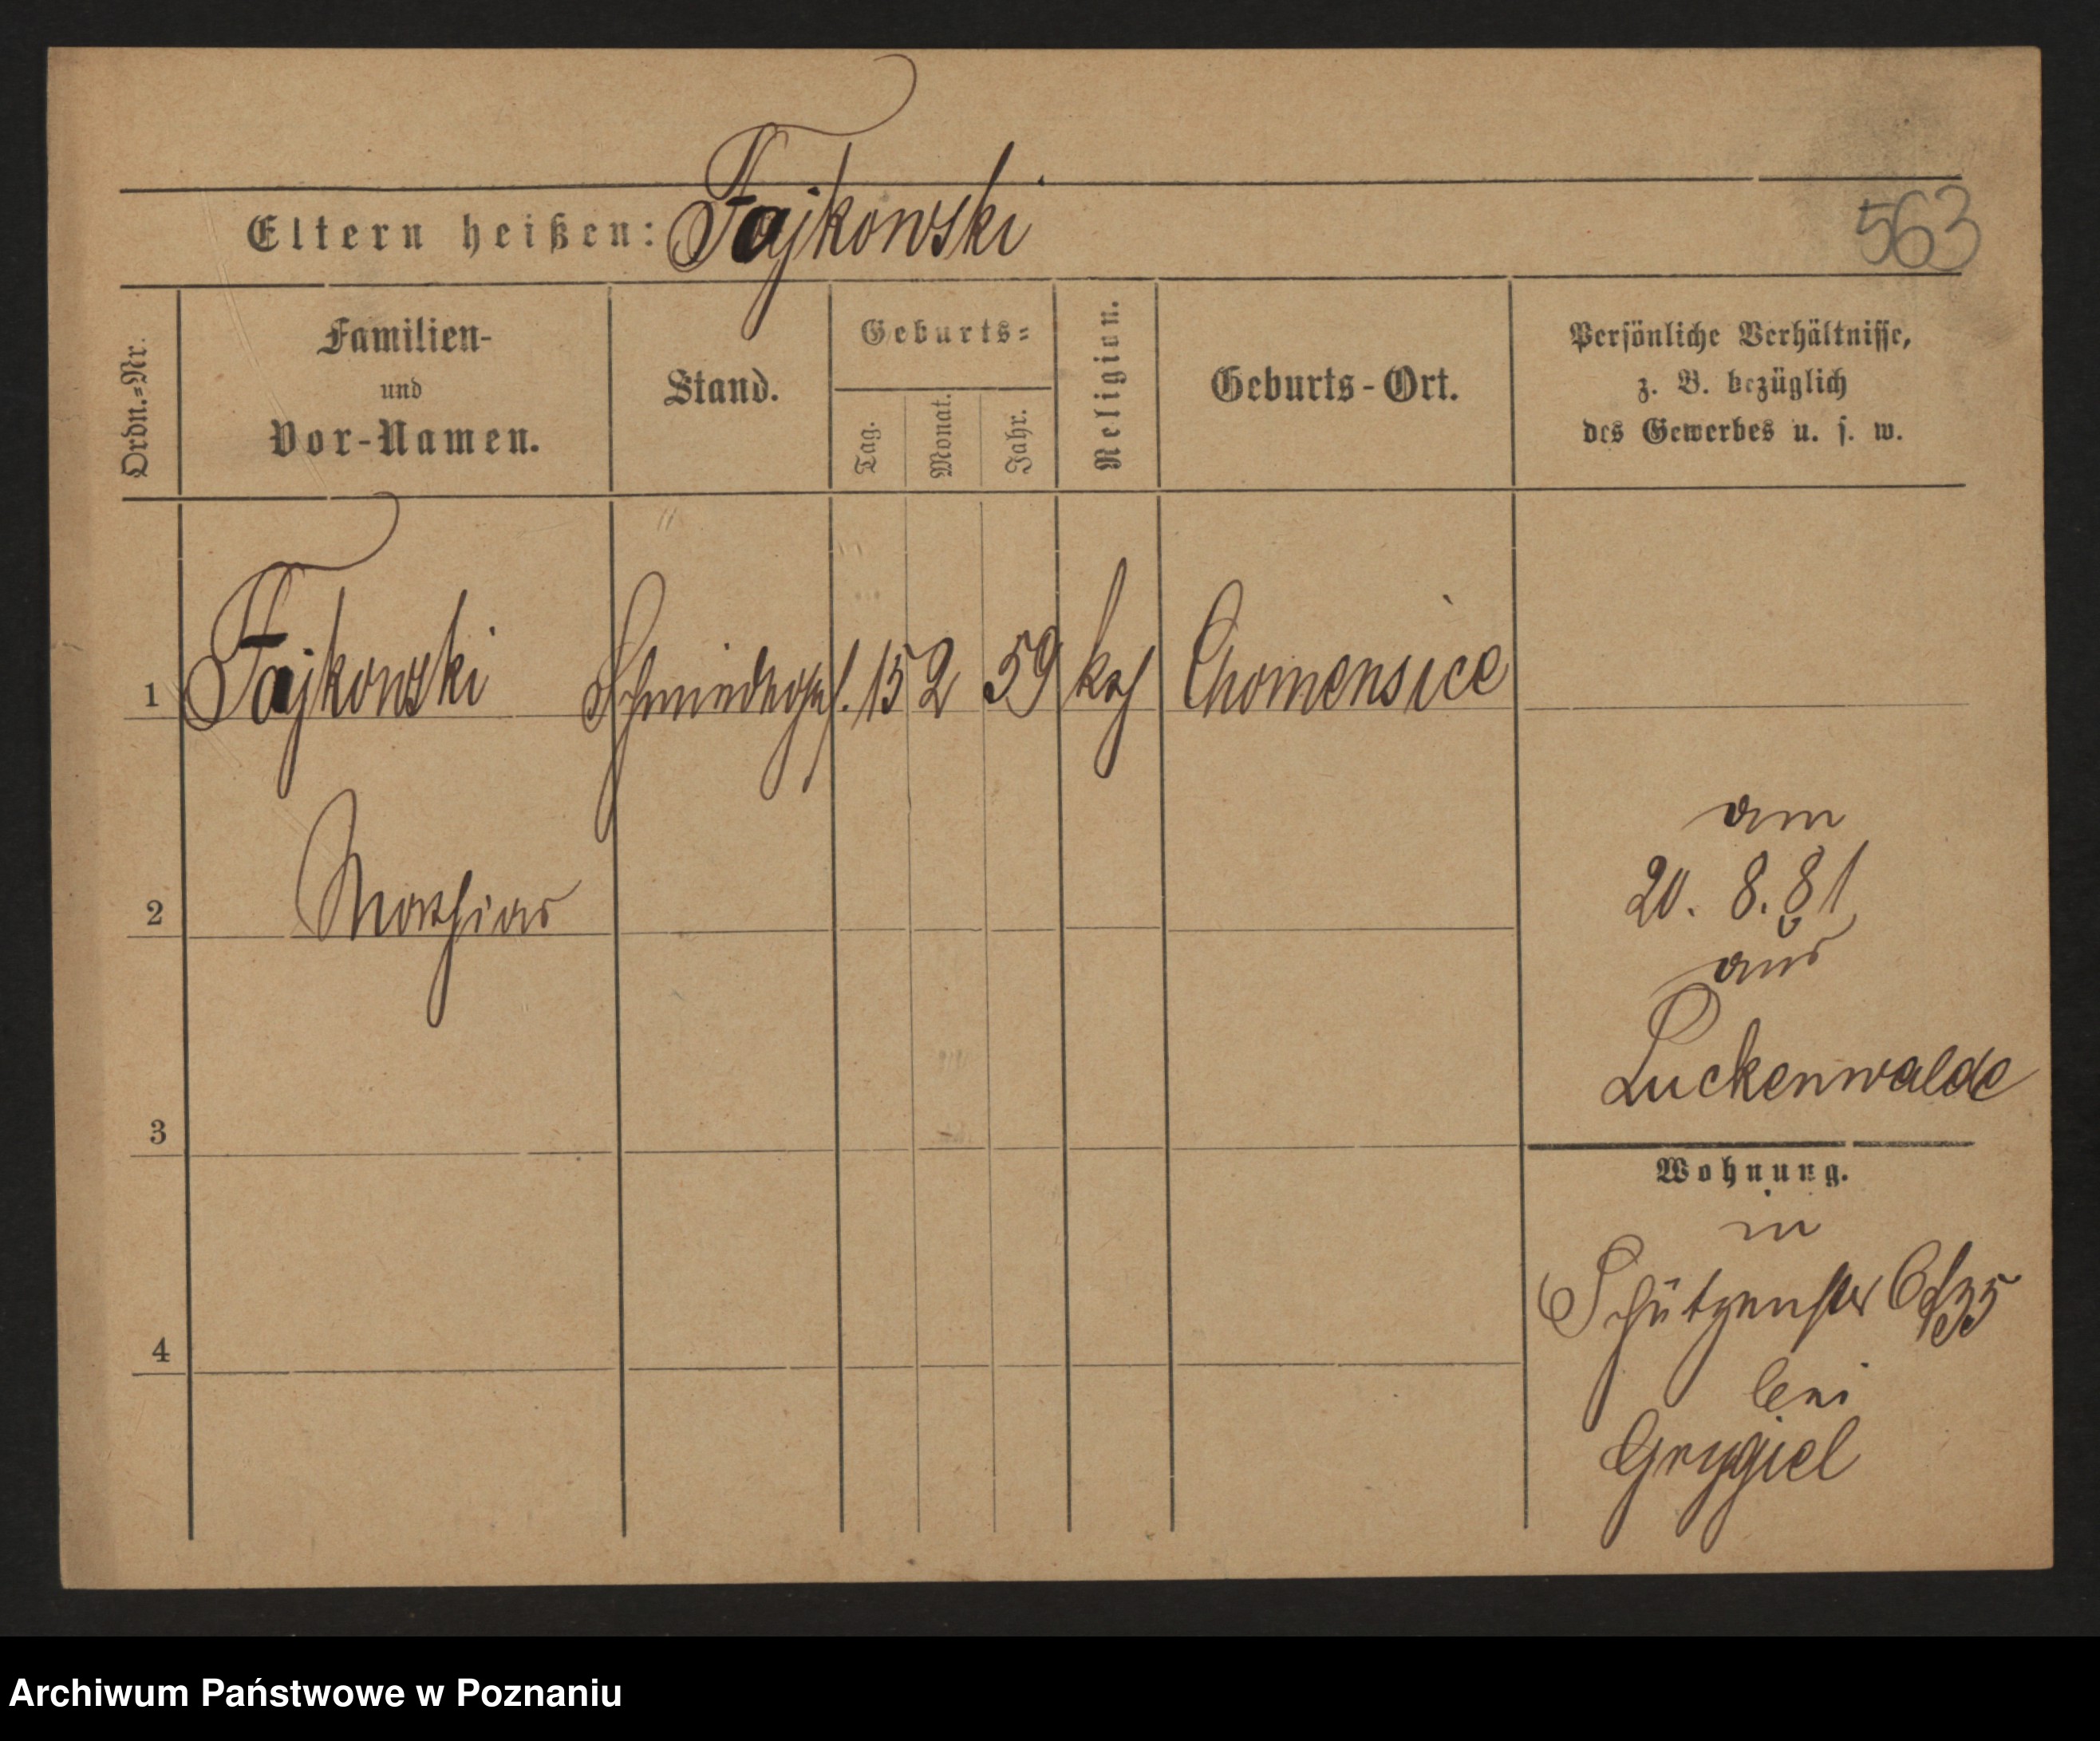 Eltern heißen: Fajkowski
563
Ordn.-Nr.
Familien-
und
Vor-Namen.
Stand.
Geburts-
Tag.
Monat.
Jahr.
Religion.
Geburts-Ort.
Persönliche Verhältnisse,
z. B. bezüglich
des Gewerbes u. s. w.
1 Fajkowski Schmiedeges. 15 2 59 kath Chomensice
2 Mathias
am
20. 8. 81
aus
Luckenwalde
3
Wohnung.
in
Schützenstr 35
4
bei
Grygiel
Archiwum Państwowe w Poznaniu